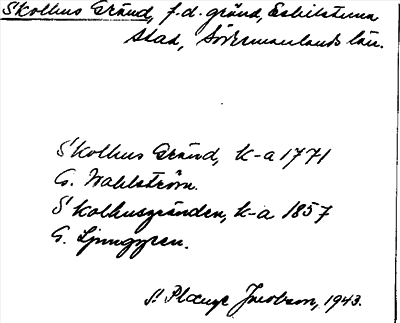 Skolhus Gränd, f.d. gränd, Eskilstuna
stad, Södermanlands län.
Skolhus Gränd, k-a 1771
G. Wahlström.
Skolhusgränden, k-a 1857
G. Ljunggren.
Jacobson, 1943.